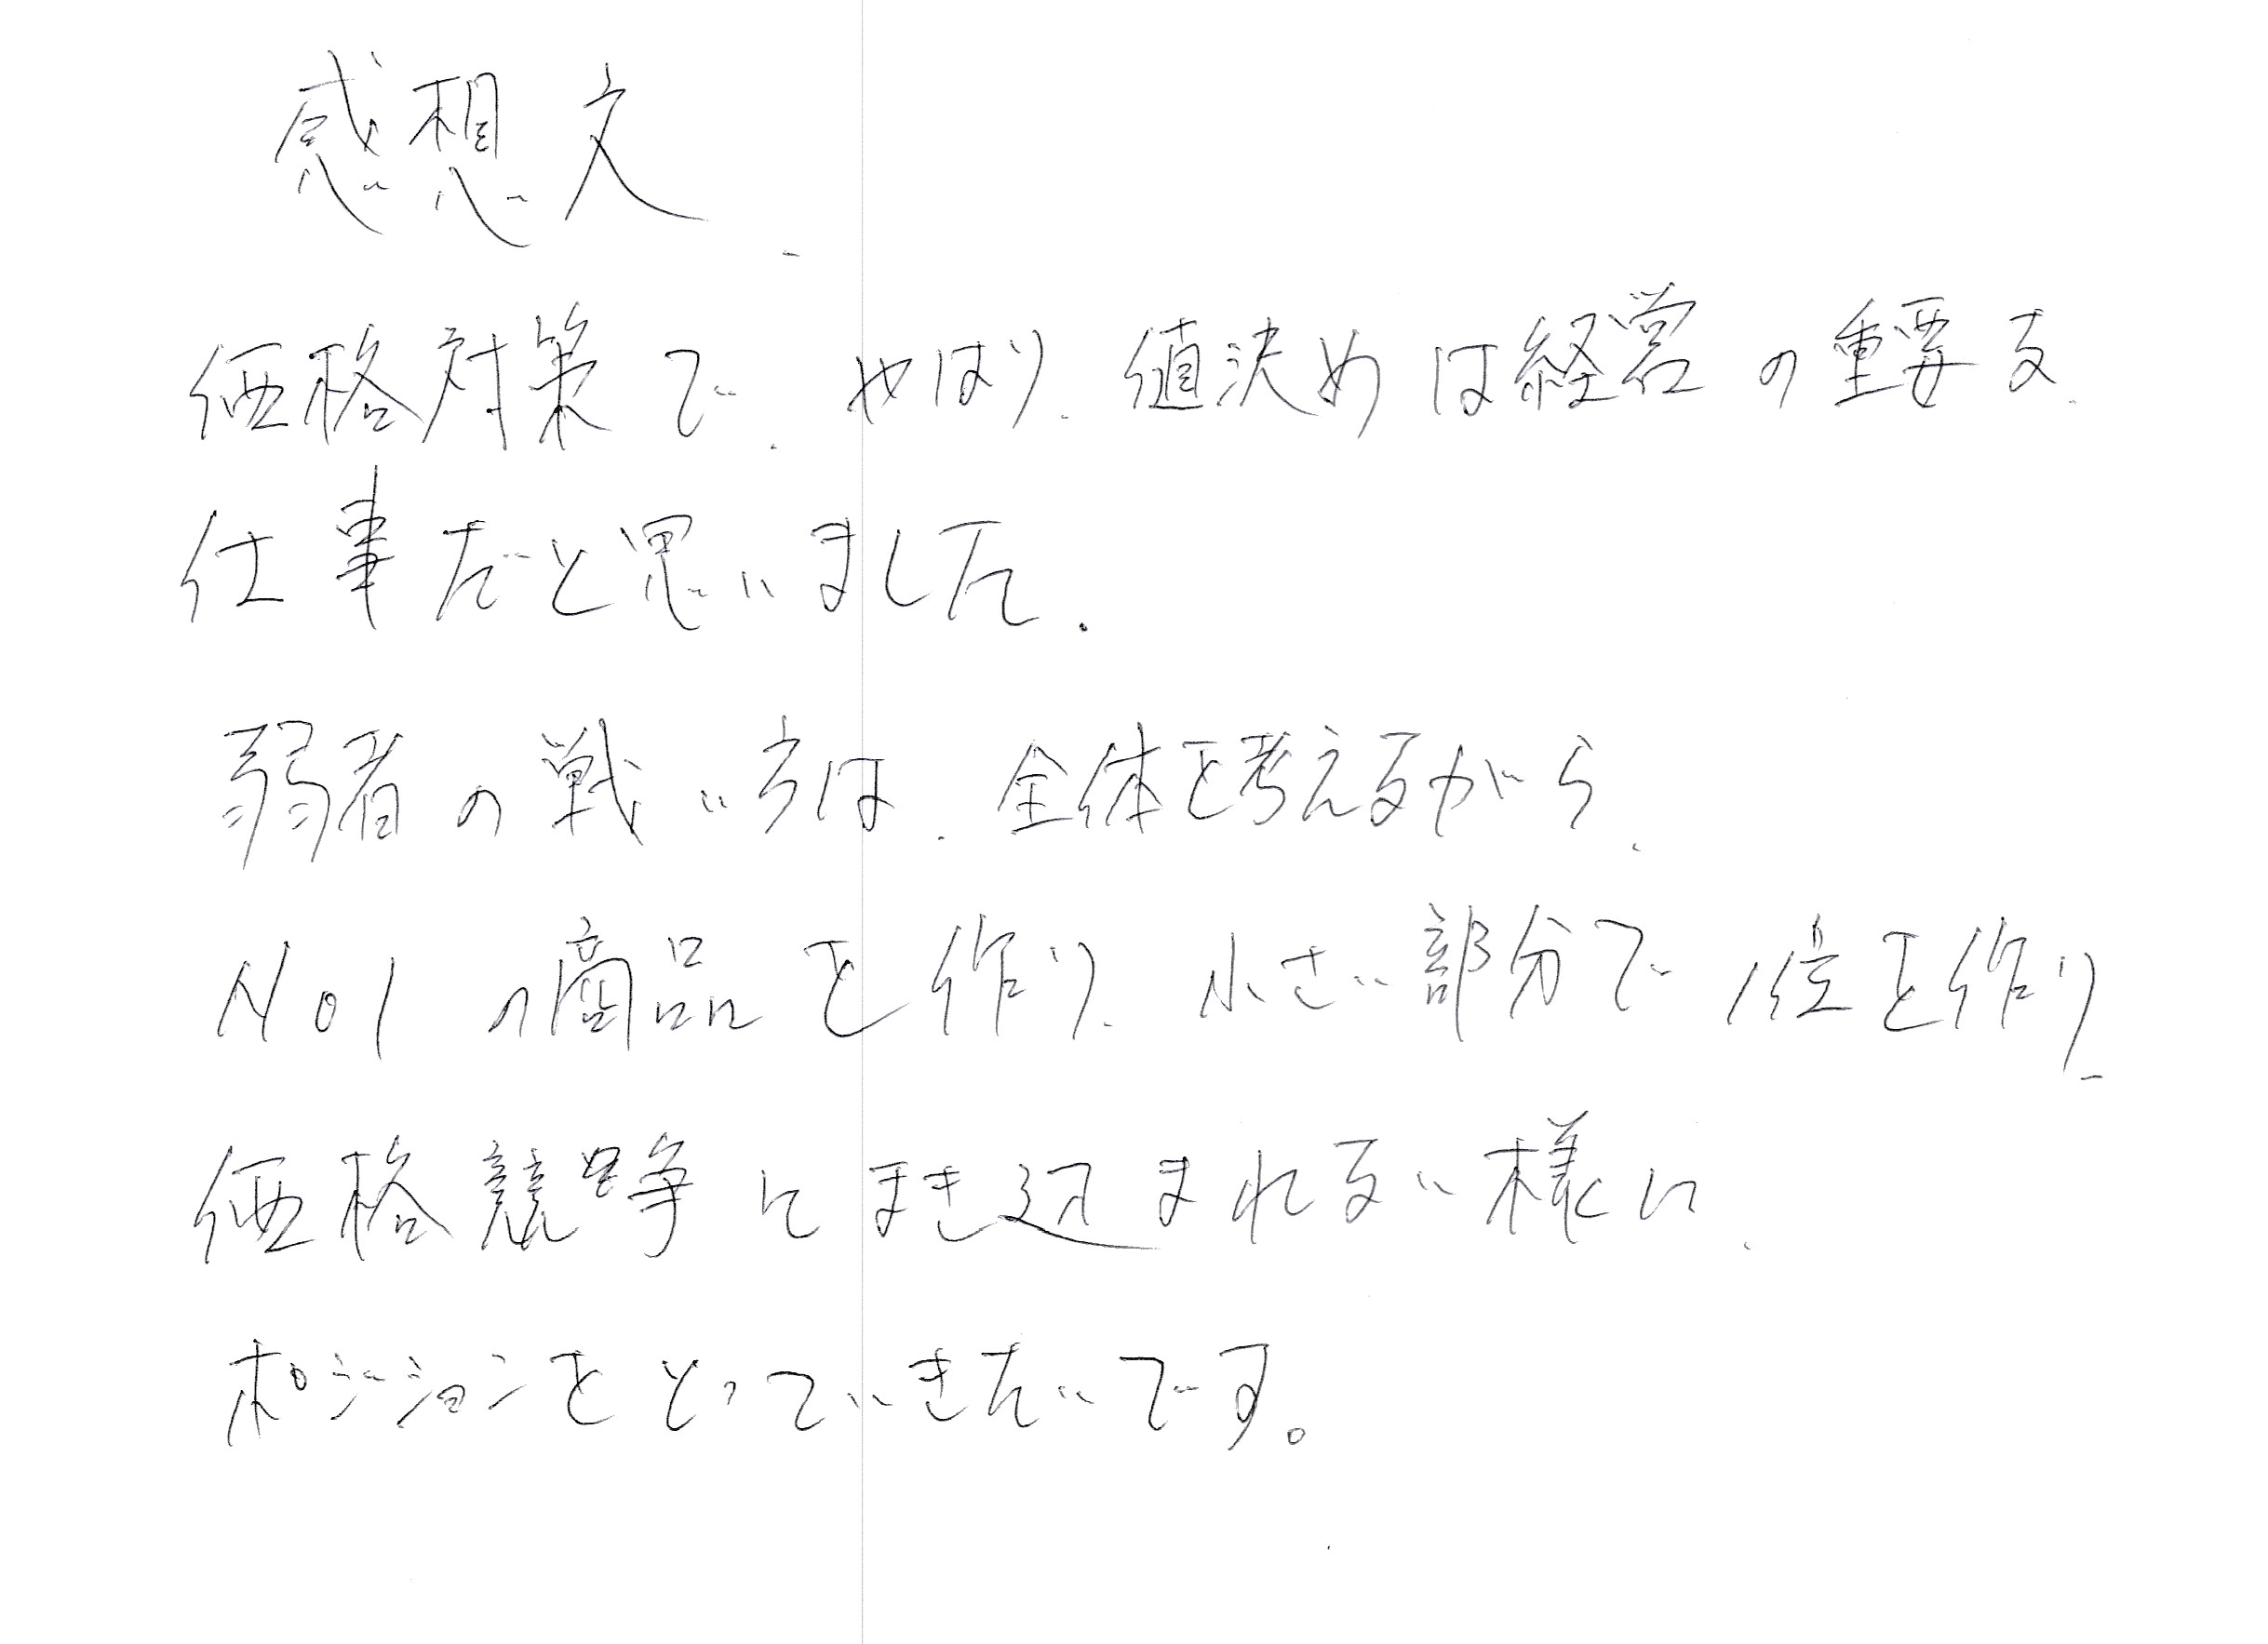 感想文
価格対策で、やはり、値決めは経営の重要な
仕事だと思いました。
弱者の戦い方は、全体を考えながら、
No1の商品を作り、小さい部分で1位を作り、
価格競争にまき込まれない様に、
ポジションをとっていきたいです。